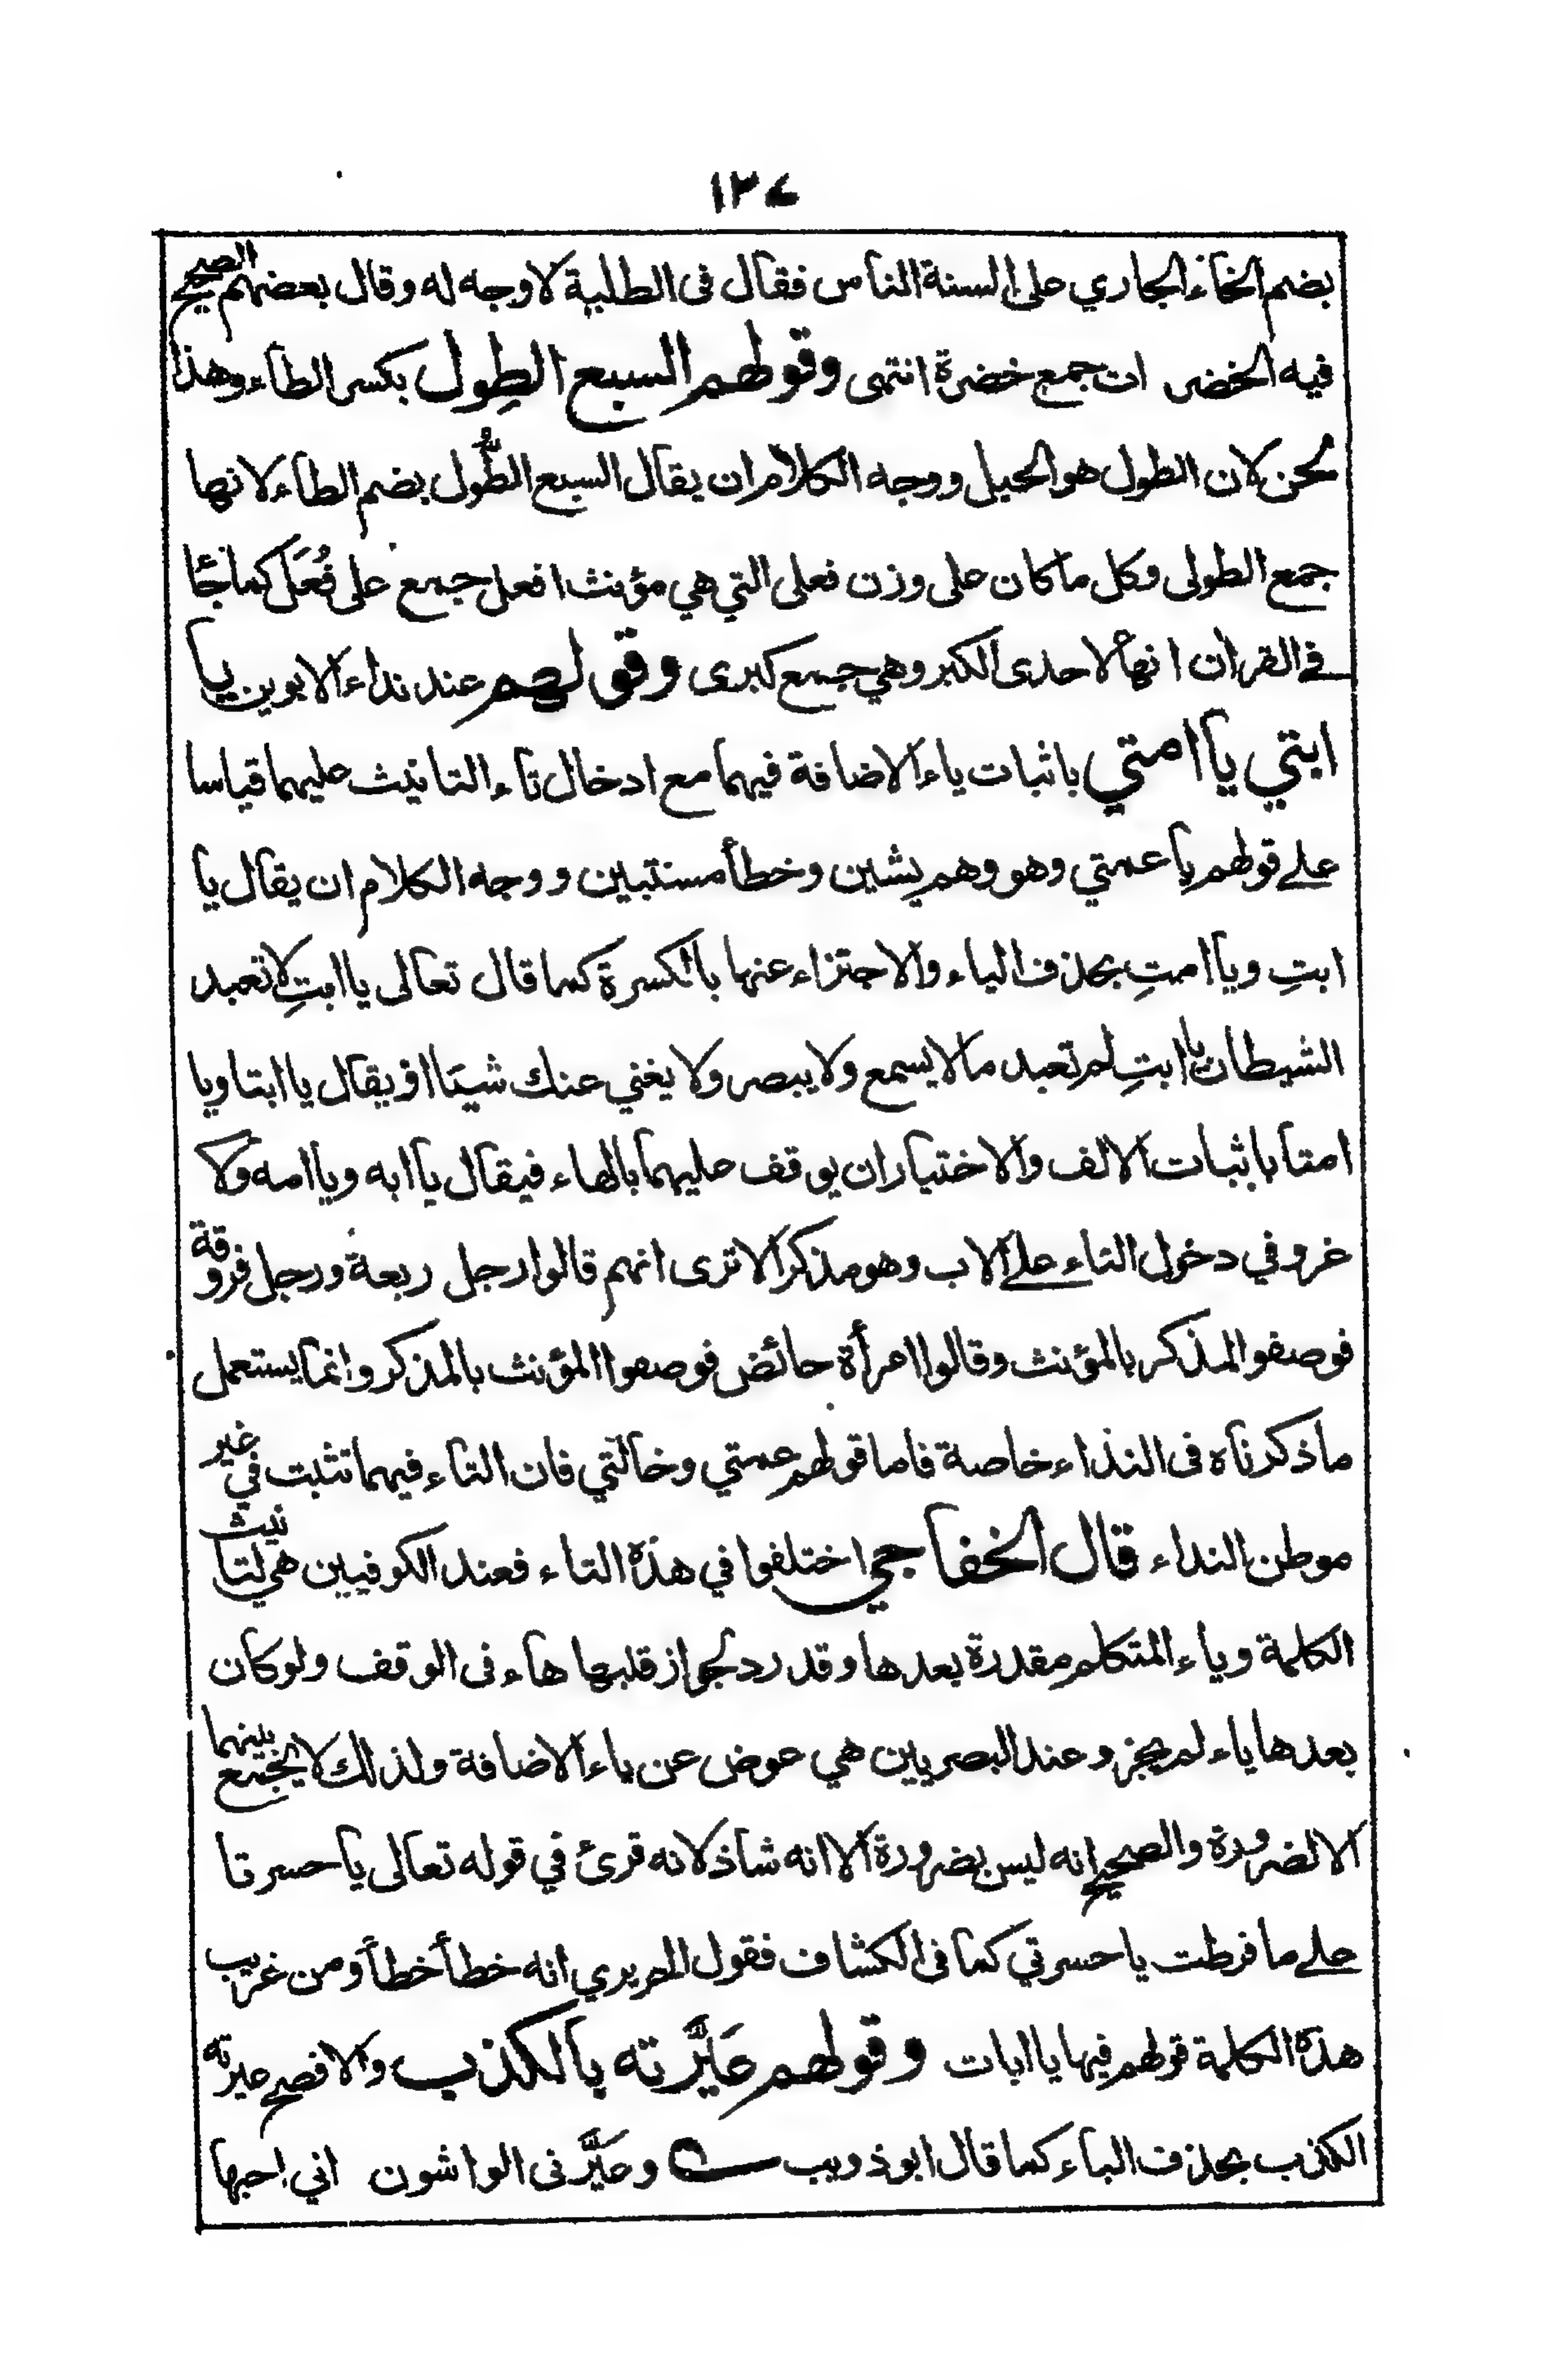 ١٣٧
بضم الخاء الجاري على السنة الناس فقال فى الطلبة لا وجه له وقال بعضهم الصحيح
فيه الخضر ان جمع خضرة انتهى وقولهم السبع الطِول بكسر الطاء وهذا
لحن لان الطول هو الحبل ووجه الكلام ان يقال السبع الطُّول بضم الطاء لانها
جمع الطولى وكل ما كان على وزن فعلى التي هي مؤنث افعل جمع على فُعَل كما جاء
في القران انها لاحدى الكبر وهي جمع كبرى وقولهم عند نداء الابوين يا
ابتي يا امتي باثبات ياء الاضافة فيهما مع ادخال تاء التانيث عليهما قياسا
على قولهم يا عمتي وهو وهم يشين وخطأ مستبين ووجه الكلام ان يقال يا
ابتِ ويا امتِ بحذف الياء والاجتزاء عنها بالكسرة كما قال تعالى يا ابتِ لا تعبد
الشيطان يا ابتِ لم تعبد ما لا يسمع ولا يبصر ولا يغني عنك شيئا او يقال يا ابتا ويا
امتا باثبات الالف والاختيار ان يوقف عليهما بالهاء فيقال يا ابه ويا امه ولا
غرو في دخول التاء على الاب وهو مذكر الا ترى انهم قالوا رجل ربعة ورجل فروقة
فوصفوا المذكر بالمؤنث وقالوا امرأة حائض فوصفوا المؤنث بالمذكر وانما يستعمل
ما ذكرناه فى النداء خاصة فاما قولهم عمتي وخالتي فان التاء فيهما تثبت في غير
موطن النداء قال الخفاجي اختلفوا في هذه التاء فعند الكوفيين هي لتانيث
الكلمة وياء المتكلم مقدرة بعدها وقد رد لجواز قلبها هاء فى الوقف ولو كان
بعدها ياء لم يجز وعند البصريين هي عوض عن ياء الاضافة ولذلك لا يجمع بينهما
الا لضرورة والصحيح انه ليس بضرورة الا انه شاذ لانه قرئ في قوله تعالى يا حسرتا
على ما فرطت يا حسرتي كما فى الكشاف فقول الحريري انه خطأ خطأ ومن غريب
هذه الكلمة قولهم فيها يا ابات وقولهم عَيَّرته بالكذب والافصح عيرته
الكذب بحذف الباء كما قال ابو ذويب وعَيَّرنى الواشون اني احبها